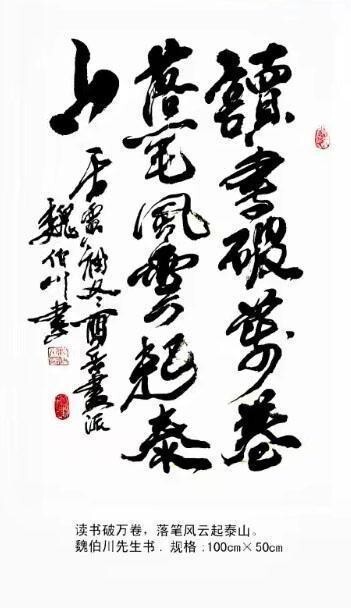 讀書破萬卷
落笔風雲起泰
山
畫派
魏伯川書
读书破万卷，落笔风云起泰山。
魏伯川先生书．规格:100cm×50cm